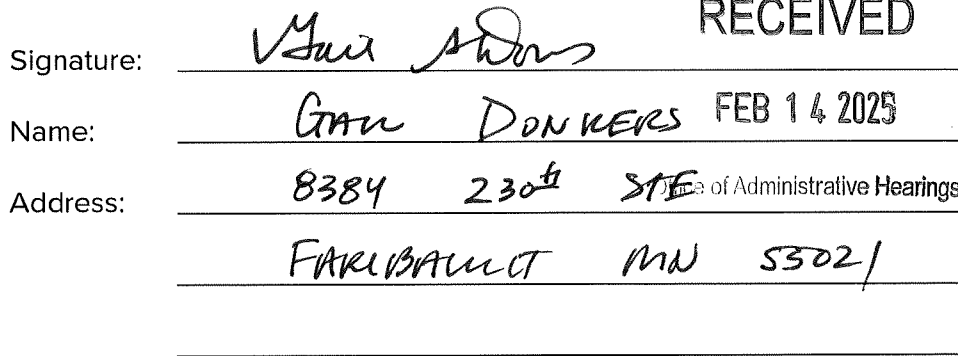 RECEIVED
Signature:
Name: GAIL DONKERS FEB 14 2025
Address: 8384 230th St E Office of Administrative Hearings
FARIBAULT MN 55021